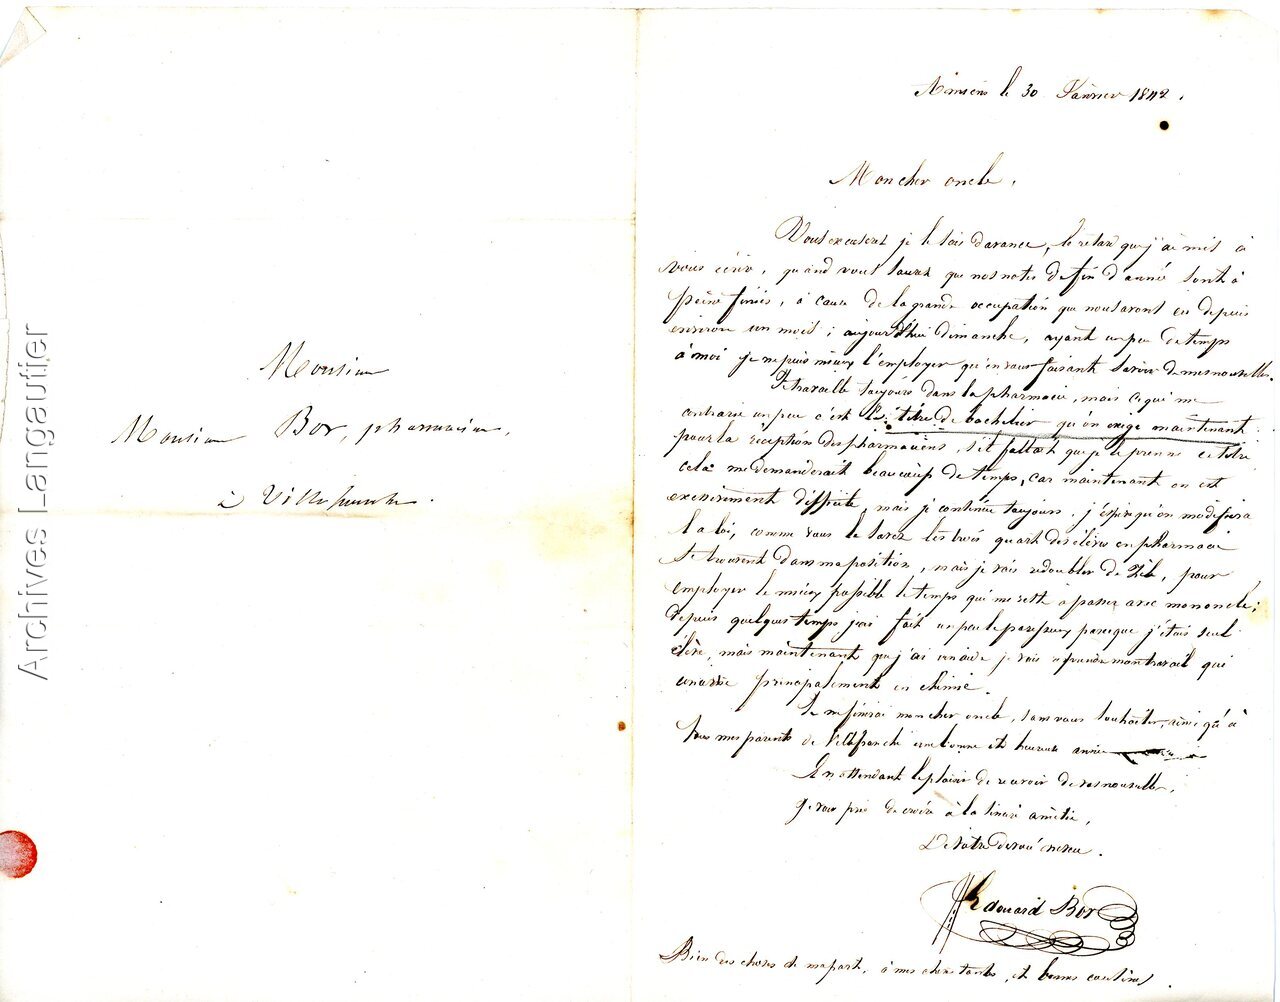 Archives Langautier
Monsieur
Monsieur Bor, pharmacien,
à Villefranche.
Amiens le 30 Janvier 1842.
Mon cher oncle,
Vous excuserez je le sais d'avance, le retard que j'ai mis à
vous écrire, quand vous saurez que nos notes de fin d'année sont à
peine finies, à cause de la grande occupation que nous avons eu depuis
environ un mois; aujourd'hui dimanche, ayant un peu de temps
à moi je ne puis mieux l'employer qu'en vous faisant savoir de mes nouvelles.
Je travaille toujours dans la pharmacie, mais ce qui me
contrarie un peu c'est le titre de bachelier qu'on exige maintenant
pour la réception des pharmaciens, s'il fallait que je le prenne ce titre
cela me demanderait beaucoup de temps, car maintenant on est
excessivement difficile, mais je continue toujours. j'espère qu'on modifiera
la loi, comme vous le savez les trois quart des élèves en pharmacie
se trouvent dans ma position, mais je vais redoubler de zèle, pour
employer le mieux possible le temps qui me reste à passer avec mon oncle;
depuis quelques temps j'ai fait un peu le paresseux parceque j'étais seul
élève, mais maintenant que j'ai un aide je vais reprendre mon travail qui
consiste principalement en chimie.
Je ne finirai mon cher oncle, sans vous souhaiter, ainsi qu'à
tous mes parents de Villefranche une bonne et heureuse année
En attendant le plaisir de recevoir de vos nouvelles,
Je vous prie de croire à la sincère amitié,
De votre dévoué neveu.
Edouard Bor
Bien des choses de ma part, à mes chères tantes, et bonnes cousines.